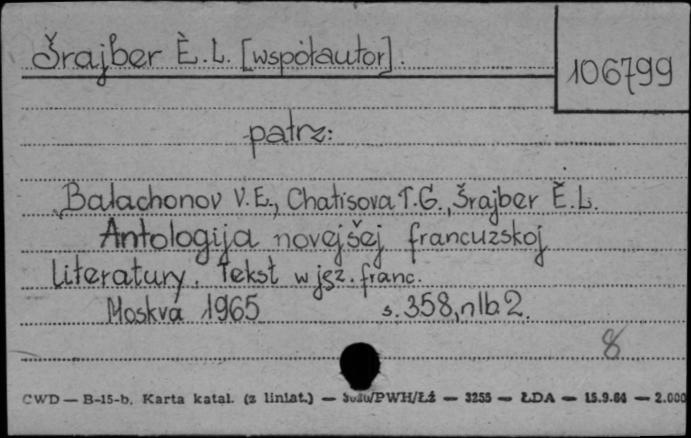 Šrajber È.L. [współautor].
106799
patrz:
Bałachonov V.E., Chatisova T.G., Šrajber Ě.L.
Antologija novejšej francuzskoj
literatury. Tekst w jęz. franc.
Moskva 1965 s. 358, nlb 2.
8
CWD — B-15-b. Karta katal. (z liniat.) — /PWH/Łź — 3255 — ŁDA — 15.9.64 — 2.000